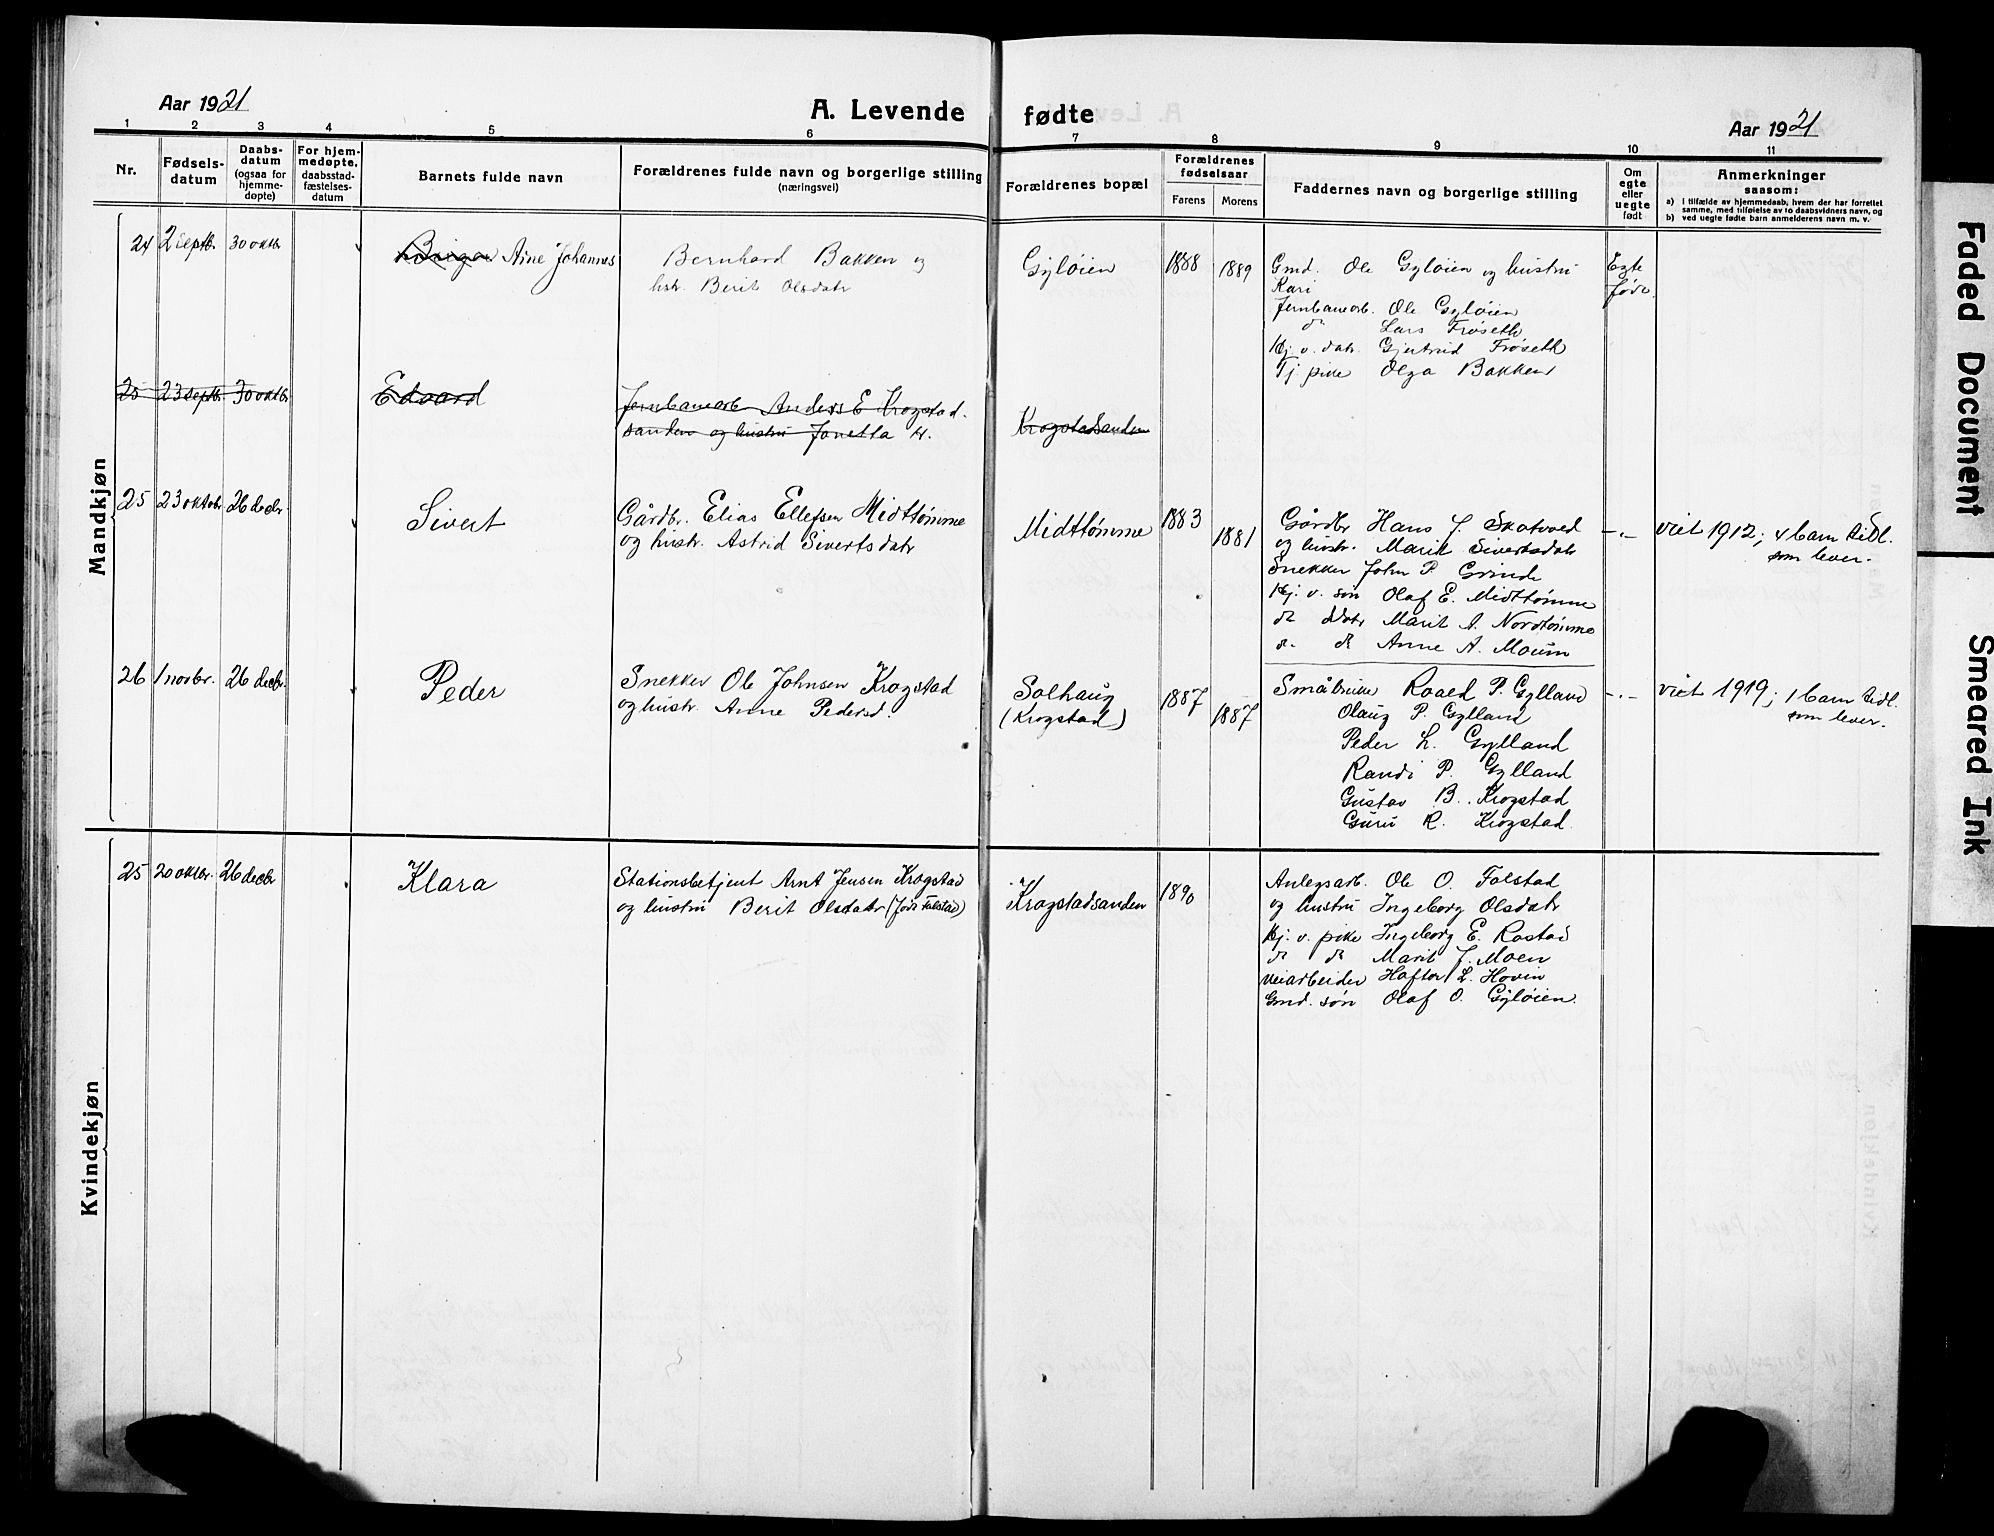 Aar 1921
A. Levende fødte
Aar 1921
1 2 3 4 5 6 7 8 9 10 11
Nr.
Fødsels-
datum
Daabs-
datum
(ogsaa for
hjemme-
døpte)
For hjem-
medøpte,
daabsstad-
fæstelses-
datum
Barnets fulde navn
Forældrenes fulde navn og borgerlige stilling
(næringsvei)
Forældrenes bopæl
Forældrenes
fødselsaar
Farens Morens
Faddernes navn og borgerlige stilling
Om
egte
eller
uegte
født
Anmerkninger
saasom:
a) I tilfælde av hjemmedaab, hvem der har forrettet
samme, med tilføielse av to daabsvidners navn, og
b) ved uegte fødte barn anmelderens navn m. v.
Mandkjøn
24 2 septb. 30 oktbr
Arne Johannes
Bernhard Bakken og
hstr. Berit Olsdatr
Gyløien
1888 1889
Gmd. Ole Gyløien og hustru
Kari
Jernbanearb. Ole Gyløien
do Lars Frøseth
Hj. v. datr. Gjertrud Frøseth
Tj. pike Olga Bakken
Egte
født
25 23 septb. 30 oktbr
Edvard
Jernbanearb Anders E Krogstad-
sanden og hustru Janetta H.
Krogstadsanden
25 23 oktobr 26 decbr
Sivert
Gårdbr. Elias Ellefsen Midttømme
og hustr. Astrid Sivertsdatr
Midttømme
1883 1881
Gårdbr Hans J. Skatvold
og hustr. Marit Sivertsdatr
Snekker John P. Grinde
Hj. v. søn Olaf E. Midttømme
do datr Marit A. Nordtømme
do do Anne A. Moum
-"-
viet 1912; 4 barn tidl.
som lever.
26 1 novbr. 26 decbr.
Peder
Snekker Ole Johnsen Krogstad
og hustr. Anne Pedersd.
Solhaug
(Krogstad)
1887 1887
Småbruker Roald P. Gylland
Olaug P. Gylland
Peder L. Gylland
Randi P. Gylland
Gustav B. Krogstad
Guru R. Krogstad.
-"-
viet 1919; 1 barn tidl.
som lever.
Kvindekjøn
25 20 oktbr. 26 decbr
Klara
Stationsbetjent Arnt Jensen Krogstad
og hustru Berit Olsdatr (født Folstad)
Krogstadsanden
1890
Anlegsarb. Ole O. Folstad
og hustru Ingeborg Olsdatr
Hj. v. pike Ingeborg E. Rostad
do do Marit J. Moen
Veiarbeider Haftor L. Hovin
Gmd. søn Olaf O. Gyløien.
Faded Document
Smeared Ink